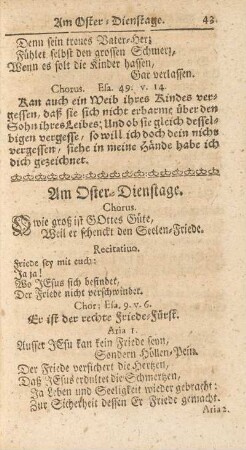 Am Oster-Dienstage. 43.
Denn sein treues Vater-Hertz
Fühlet selbst den grossen Schmertz,
Wenn es solt die Kinder hassen,
Gar verlassen.
Chorus. Esa. 49. v. 14.
Kan auch ein Weib ihres Kindes ver-
gessen, daß sie sich nicht erbarme über den
Sohn ihres Leibes: Und ob sie gleich dessel-
bigen vergesse, so will ich doch dein nicht
vergessen, siehe in meine Hände habe ich
dich gezeichnet.
Am Oster-Dienstage.
Chorus.
O wie groß ist GOttes Güte,
Weil er schenckt den Seelen-Friede.
Recitativo.
Friede sey mit euch:
Ja ja!
Wo JEsus sich befindet,
Der Friede nicht verschwindet.
Chor: Esa. 9. v. 6.
Er ist der rechte Friede-Fürst.
Aria 1.
Ausser JEsu kan kein Friede seyn,
Sondern Höllen-Pein.
Der Friede versichert die Hertzen,
Daß JEsus erdultet die Schmertzen,
Ja Leben und Seeligkeit wieder gebracht:
Zur Sicherheit dessen Er Friede gemacht.
Aria 2.